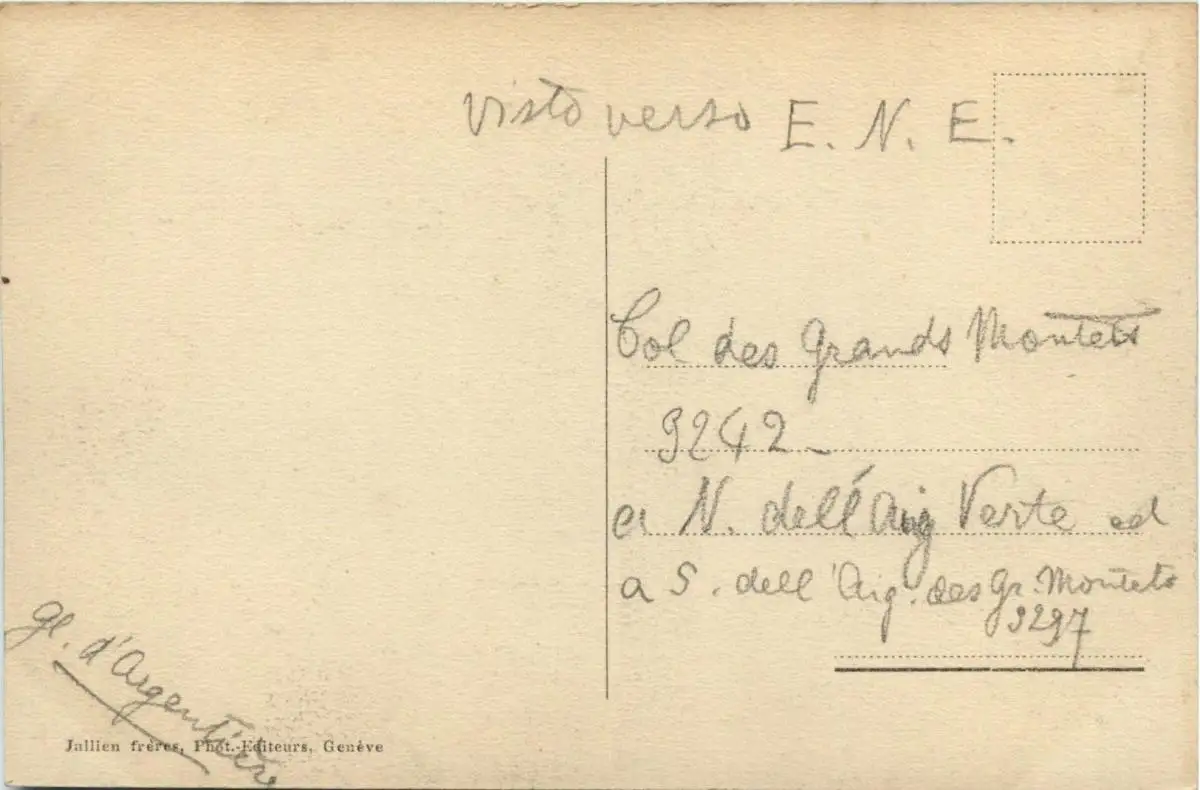 visto verso E. N. E.
Col des Grands Montets
3242
a N. dell'Aig Verte ed
a S. dell'Aig. des Gr. Montets
3297
gl. d'Argentière
Jullien frères, Phot.-Editeurs, Genève